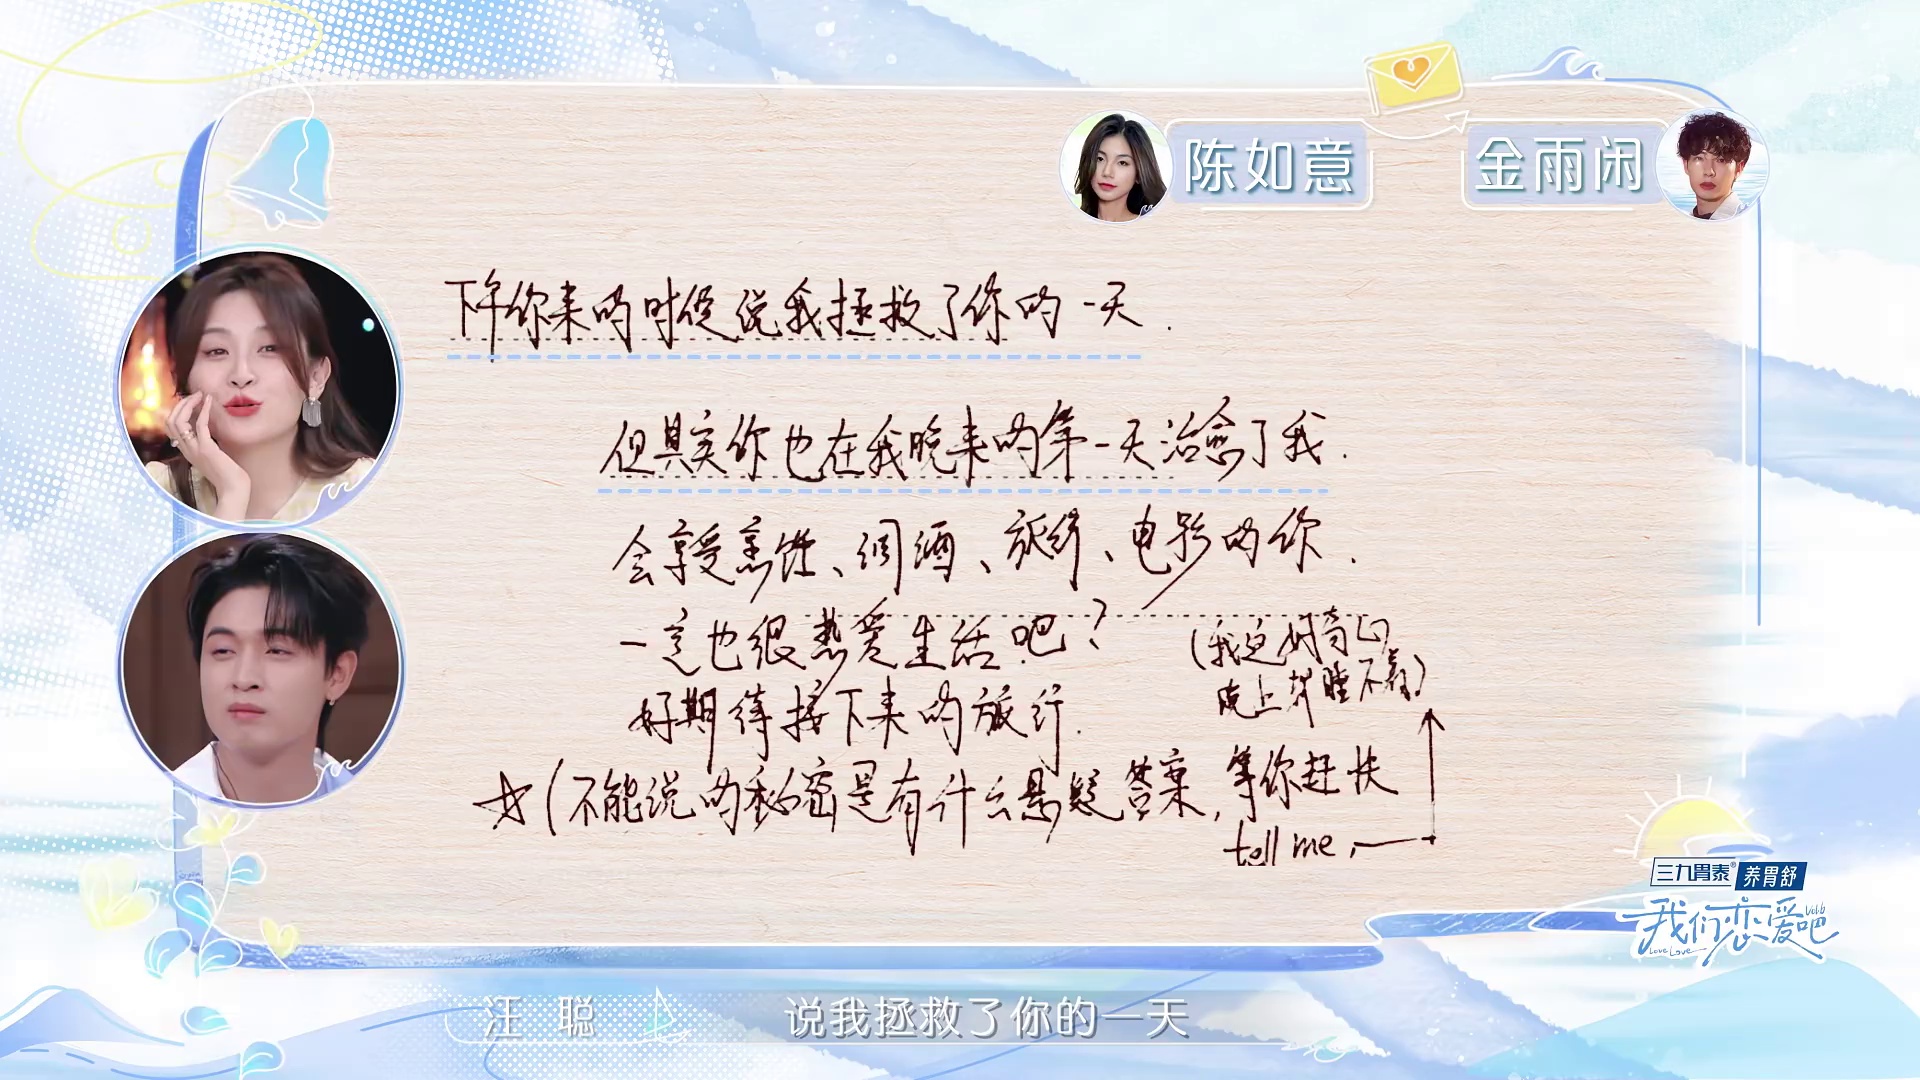 陈如意
金雨闲
下午你来的时候说我拯救了你的一天.
但其实你也在我晚来的第一天治愈了我.
会享受烹饪、调酒、旅行、电影的你.
一定也很热爱生活吧?
(我还好奇的
晚上都睡不着)
好期待接下来的旅行.
☆(不能说的秘密是有什么悬疑答案,等你赶快
tell me,
三九胃泰® 养胃舒
我们恋爱吧
Love Love
汪聪
说我拯救了你的一天